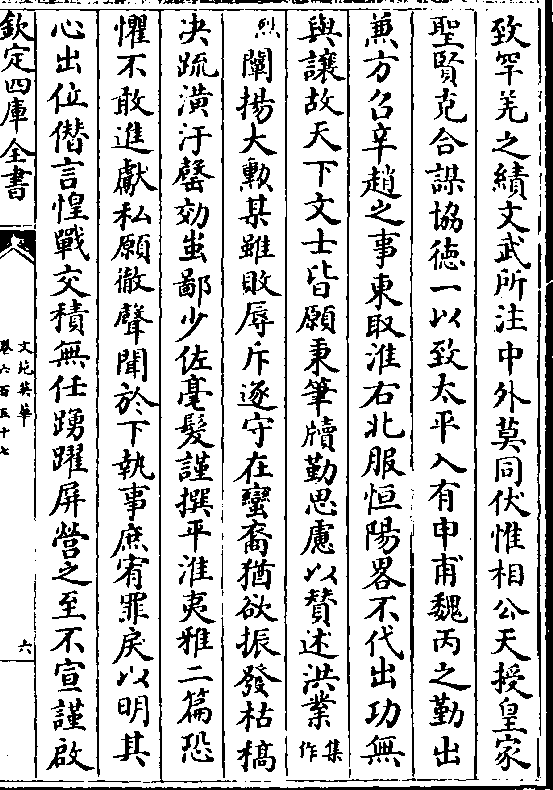 致罕羌之績文武所注中外莫同伏惟相公天授皇家
聖賢克合謀協德一以致太平入有申甫魏丙之勤出
兼方召辛趙之事東取淮右北服恒陽畧不代出功無
與讓故天下文士皆願秉筆牘勤思慮以贊述洪業集作
烈闡揚大勲某雖敗辱斥逐守在蠻裔猶欲振發枯槁
決疏潢汙罄効蚩鄙少佐毫髮謹撰平淮夷雅二篇恐
懼不敢進獻私願徹聲聞於下執事庶宥罪戾以明其
心出位僣言惶戰交積無任踴躍屏營之至不宣謹啟
欽定四庫全書
文苑英華
卷六百五十七
六